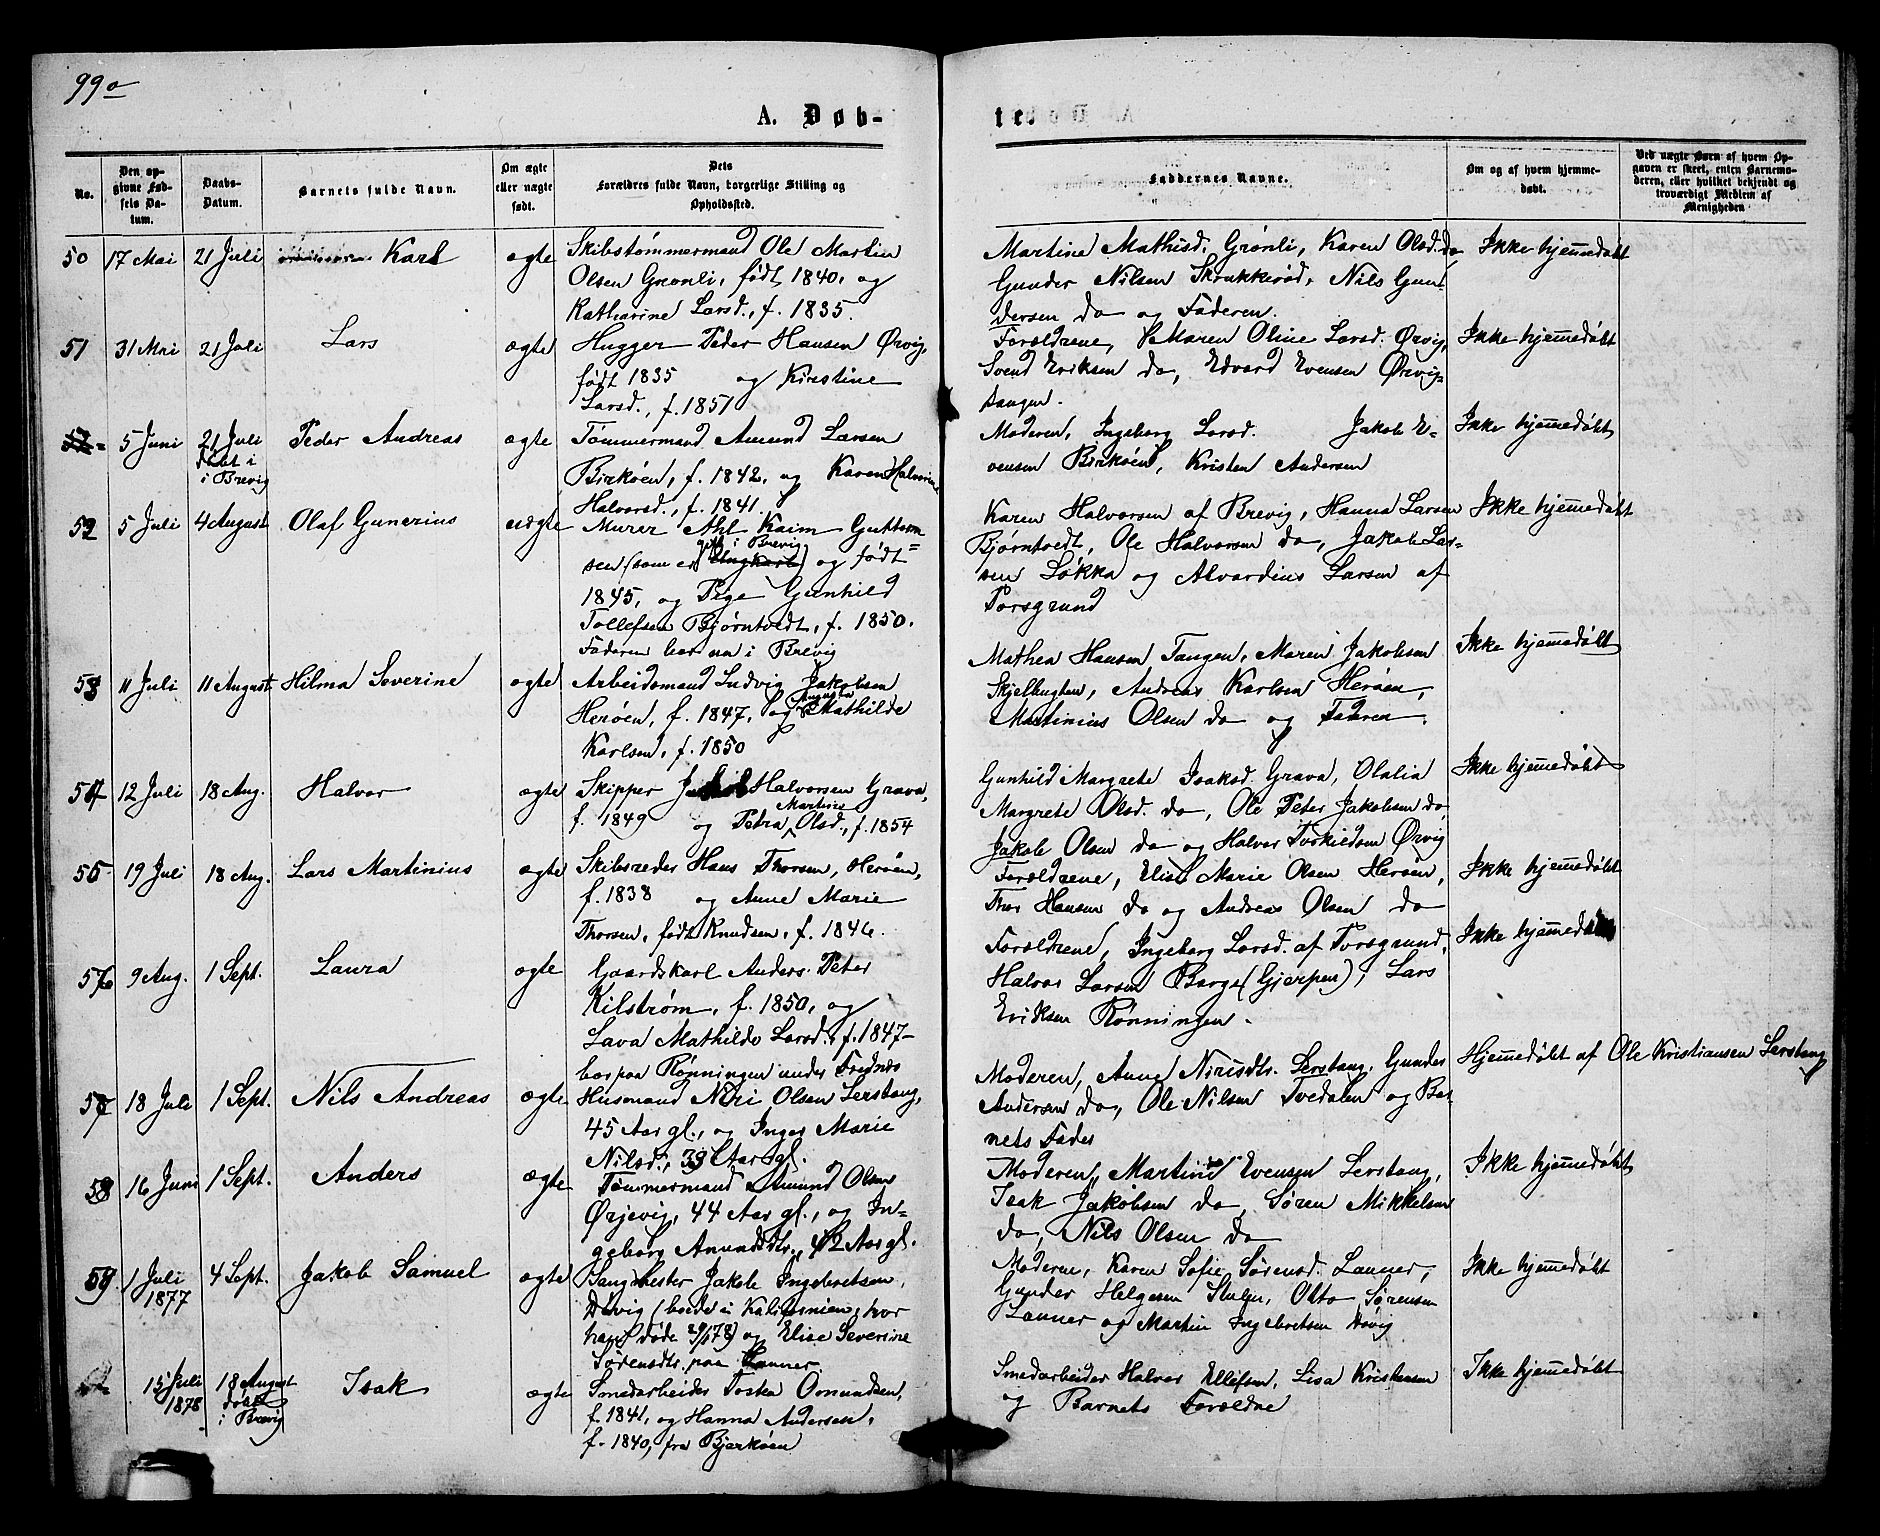 99a
A. Døb-
te.
No.
Den op-
givne Fød-
sels Da-
tum.
Daabs-
Datum.
Barnets fulde Navn.
Om ægte
eller uægte
født.
Dets
Forældres fulde Navn, borgerlige Stilling og
Opholdssted.
Faddernes Navne.
Om og af hvem hjemme-
døbt.
Ved uægte Børn af hvem Op-
gaven er skeet, enten Barnemo-
deren, eller hvilket bekjendt og
troværdigt Medlem af
Menigheden
50 17 Mai 21 Juli Karl ægte Skibstømmermand Ole Martin
Olsen Grønli, født 1840, og
Katharine Larsd., f. 1835.
Martine Mathisd. Grønli, Karen Olsd. do,
Gunder Nilsen Skrukkerød, Nils Gun-
dersen do og Faderen.
Ikke hjemmedøbt
51 31 Mai 21 Juli Lars ægte Hugger Peder Hansen Ørvig,
født 1835 og Kirstine
Larsd., f. 1851
Forældrene, Maren Oline Larsd. Ørvig,
Svend Eriksen do, Edvard Evensen Ørvig-
tangen.
Ikke hjemmedøbt
5 Juni 21 Juli Peder Andreas ægte Tømmermand Amund Larsen
døbt i
i Brevig
Birkøen, f. 1842, og Karen Halvorine
Halvorsd., f. 1841.
Moderen, Ingeborg Larsd. Jakob E-
vensen Birkøen, Kristen Andersen
Ikke hjemmedøbt
52 5 Juli 4 August Olaf Gunerius uægte Murer Ahl Kaim Guttorm-
sen (som er gift i Brevig) og født
1845, og Pige Gunhild
Tollefsen Bjørntvedt, f. 1850.
Faderen bor nu i Brevig
Karen Halvorsen af Brevig, Hanna Larsen
Bjørntvedt, Ole Halvorsen do, Jakob Lar-
sen Løkka og Alvardius Larsen af
Porsgrund
Ikke hjemmedøbt
53 11 Juli 11 August Hilma Severine ægte Arbeidsmand Ludvig Jakobsen
Herøen, f. 1847, og Mathilde
Karlsen, f. 1850
Mathea Hansen Tangen, Maren Jakobsen
Skjelbugten, Andreas Karlsen Herøen,
Martinius Olsen do og Faderen.
Ikke hjemmedøbt
54 12 Juli 18 Aug. Halvor ægte Skipper Jakob Halvorsen Grava,
f. 1849 og Petra Martine Olsd., f. 1854
Gunhild Margrete Isaksd. Grava, Olalia
Margrete Olsd. do, Ole Peter Jakobsen do,
Jakob Olsen do og Halvor Torkildsen Ørvig
Ikke hjemmedøbt
55 19 Juli 18 Aug. Lars Martinius ægte Skibsreder Hans Thorsen, Herøen,
f. 1838 og Anne Marie
Thorsen, født Knudsen, f. 1846.
Forældrene, Elise Marie Olsen Herøen,
Thor Hansen do og Andreas Olsen do
Ikke hjemmedøbt
56 9 Aug. 1 Sept. Laura ægte Gaardskarl Anders Peter
Kilstrøm, f. 1850, og
Lava Mathilde Larsd., f. 1847-
bor paa Rønningen under Frednæs
Forældrene, Ingeborg Larsd. af Porsgrund,
Halvor Larsen Borge (Gjerpen), Lars
Eriksen Rønningen.
Ikke hjemmedøbt
57 18 Juli 1 Sept. Nils Andreas ægte Husmand Niri Olsen Lerstang,
45 Aar gl., og Inger Marie
Nilsd., 39 Aar gl.
Moderen, Anne Nirisdtr. Lerstang, Gunder
Andersen do, Ole Nilsen Tvedalen og Bar-
nets Fader
Hjemmedøbt af Ole Kristiansen Lerstang
58 16 Juni 1 Sept. Anders ægte Tømmermand Amund Olsen
Ørjevig, 44 Aar gl., og In-
geborg Amundsdtr., 42 Aar gl.
Moderen, Martine Evensen Lerstang,
Isak Jakobsen do, Søren Mikkelsen
do, Nils Olsen do
Ikke hjemmedøbt
59 1 Juli 4 Sept. Jakob Samuel ægte Jakob Ingebretsen
1877
Døvig (boede i Kalifornien, hvor
han døde) og Elise Severine
Sørensdtr. paa Lanner
Moderen, Karen Sofie Sørensd. Lanner,
Gunder Helgesen Stulen, Otto Sørensen
Lanner og Martin Ingebretsen Døvig
Ikke hjemmedøbt
15 Juli 18 August Isak ægte Smedarbeider Tosten Omundsen,
1878 døbt
i Brevig
f. 1841, og Hanna Andersen,
f. 1840, fra Bjerkøen
Smedarbeider Halvor Ellefsen, Lisa Kristensen
og Barnets Forældre
Ikke hjemmedøbt